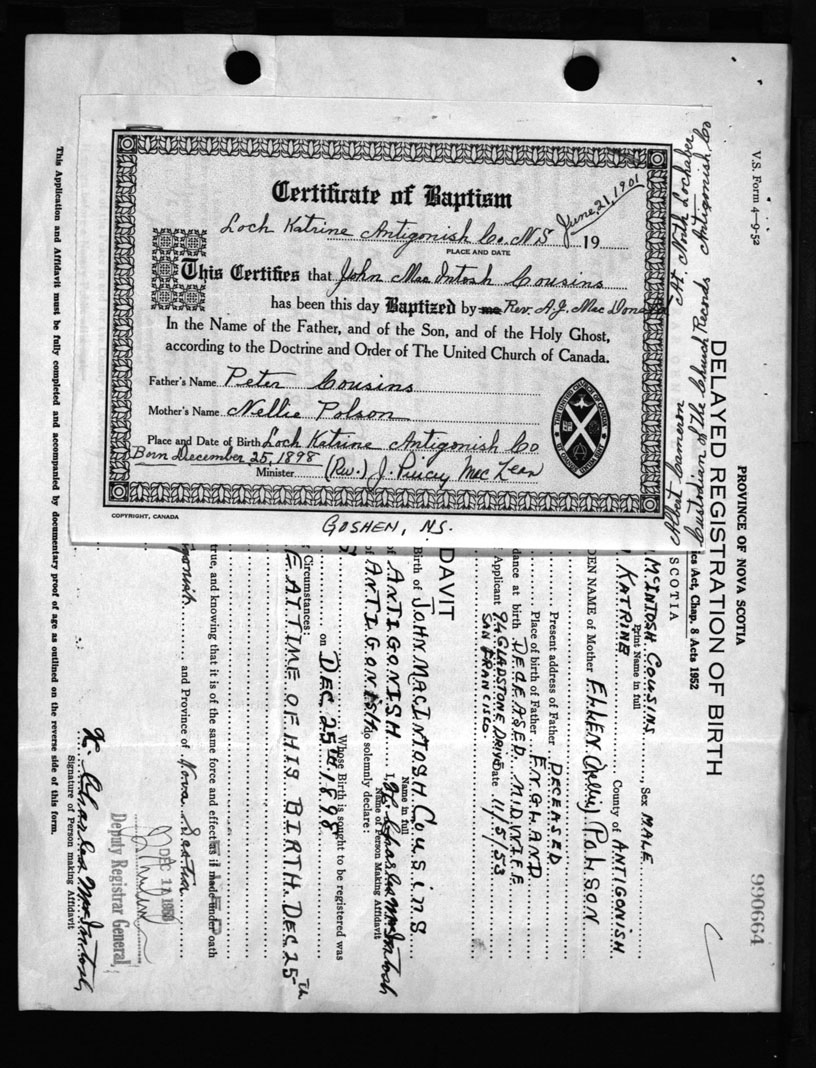 Certificate of Baptism
Loch Katrine Antigonish Co. NS June 21, 1901 19
PLACE AND DATE
This Certifies that John MacIntosh Cousins
has been this day Baptized by me Rev. A.J. Mac
In the Name of the Father, and of the Son, and of the Holy Ghost,
according to the Doctrine and Order of The United Church of Canada.
Father's Name Peter Cousins
Mother's Name Nellie Polson
Place and Date of Birth Loch Katrine Antigonish Co
Born December 25, 1898
Minister (Rev.) J. MacLean
COPYRIGHT, CANADA
GOSHEN, NS.
V.S. Form 4-9-52
990664
PROVINCE OF NOVA SCOTIA
DELAYED REGISTRATION OF BIRTH
ics Act, Chap. 8 Acts 1952
SCOTIA
McINTOSH COUSINS, Sex MALE
Print Name in full
KATRINE County of ANTIGONISH
DEN NAME of Mother ELLEN (Nelly) POLSON
Present address of Father DECEASED
Place of birth of Father ENGLAND
dance at birth DECEASED MIDWIFE
Applicant 94 GLADSTONE DRIVE Date 11/5/53
SAN FRANCISCO
DAVIT
Birth of JOHN MACINTOSH COUSINS
Name in full
of ANTIGONISH I, K. Charles MacIntosh
Name of Person Making Affidavit
of ANTIGONISH do solemnly declare:
Whose Birth is sought to be registered was
on DEC 25TH 1898
Circumstances:
E AT TIME OF HIS BIRTH. DEC 25TH
true, and knowing that it is of the same force and effect as if made under oath
gonish and Province of Nova Scotia
DEC 1
Deputy Registrar General
K. Charles MacIntosh
Signature of Person making Affidavit
This Application and Affidavit must be fully completed and accompanied by documentary proof of age as outlined on the reverse side of this form.